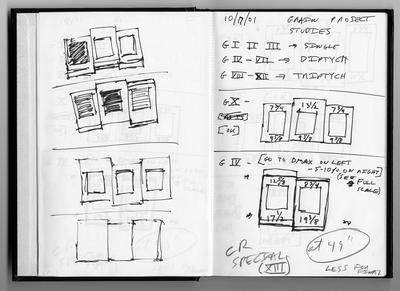 10/7/01 GRAIN PROJECT
STUDIES
G I II III → SINGLE
G IV - VII → DIPTYCH
G VIII - XII → TRIPTYCH
G X -
7 3/4 13 1/2 7 3/4
9 3/8 9 3/8 9 3/8
[OK]
G IV - [GO TO DMAX ON LEFT
- 5-10% ON RIGHT]
FULL
SCALE)
12 3/8 8 3/4
17 1/2 19 5/8
CR
SPECIAL
(XIII)
at 49"
LESS